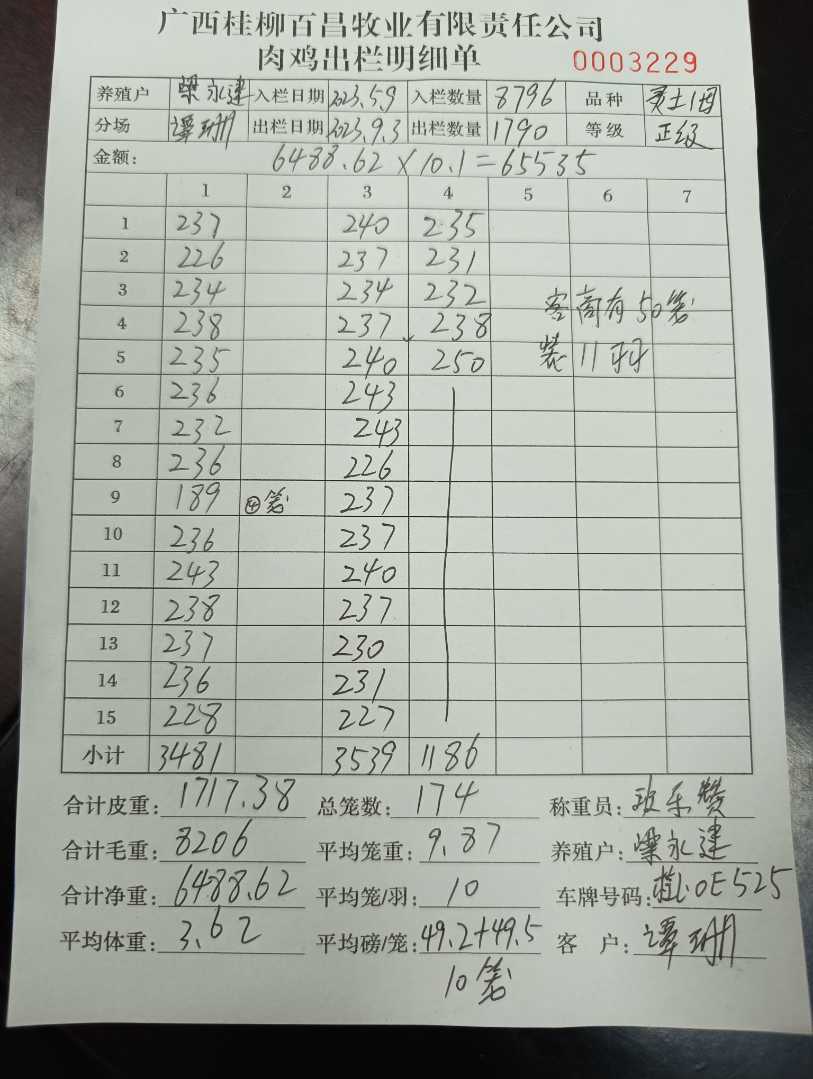 广西桂柳百昌牧业有限责任公司
肉鸡出栏明细单 0003229
养殖户 梁永建 入栏日期 2023.5.9 入栏数量 8796 品种
分场 谭珊 出栏日期 2023.9.3 出栏数量 1790 等级 正级
金额: 6488.62×10.1=65535
1 2 3 4 5 6 7
1 237 240 235
2 226 237 231
3 234 234 232 客商有50笼
4 238 237 238
5 235 240 250 装11羽
6 236 243
7 232 243
8 236 226
9 189 ④笼 237
10 236 237
11 243 240
12 238 237
13 237 230
14 236 231
15 228 227
小计 3481 3539 1186
合计皮重: 1717.38 总笼数: 174 称重员:
合计毛重: 8206 平均笼重: 9.87 养殖户: 梁永建
合计净重: 6488.62 平均笼/羽: 10 车牌号码: 桂L0E525
平均体重: 3.62 平均磅/笼: 49.2+49.5 客 户: 谭珊
10笼